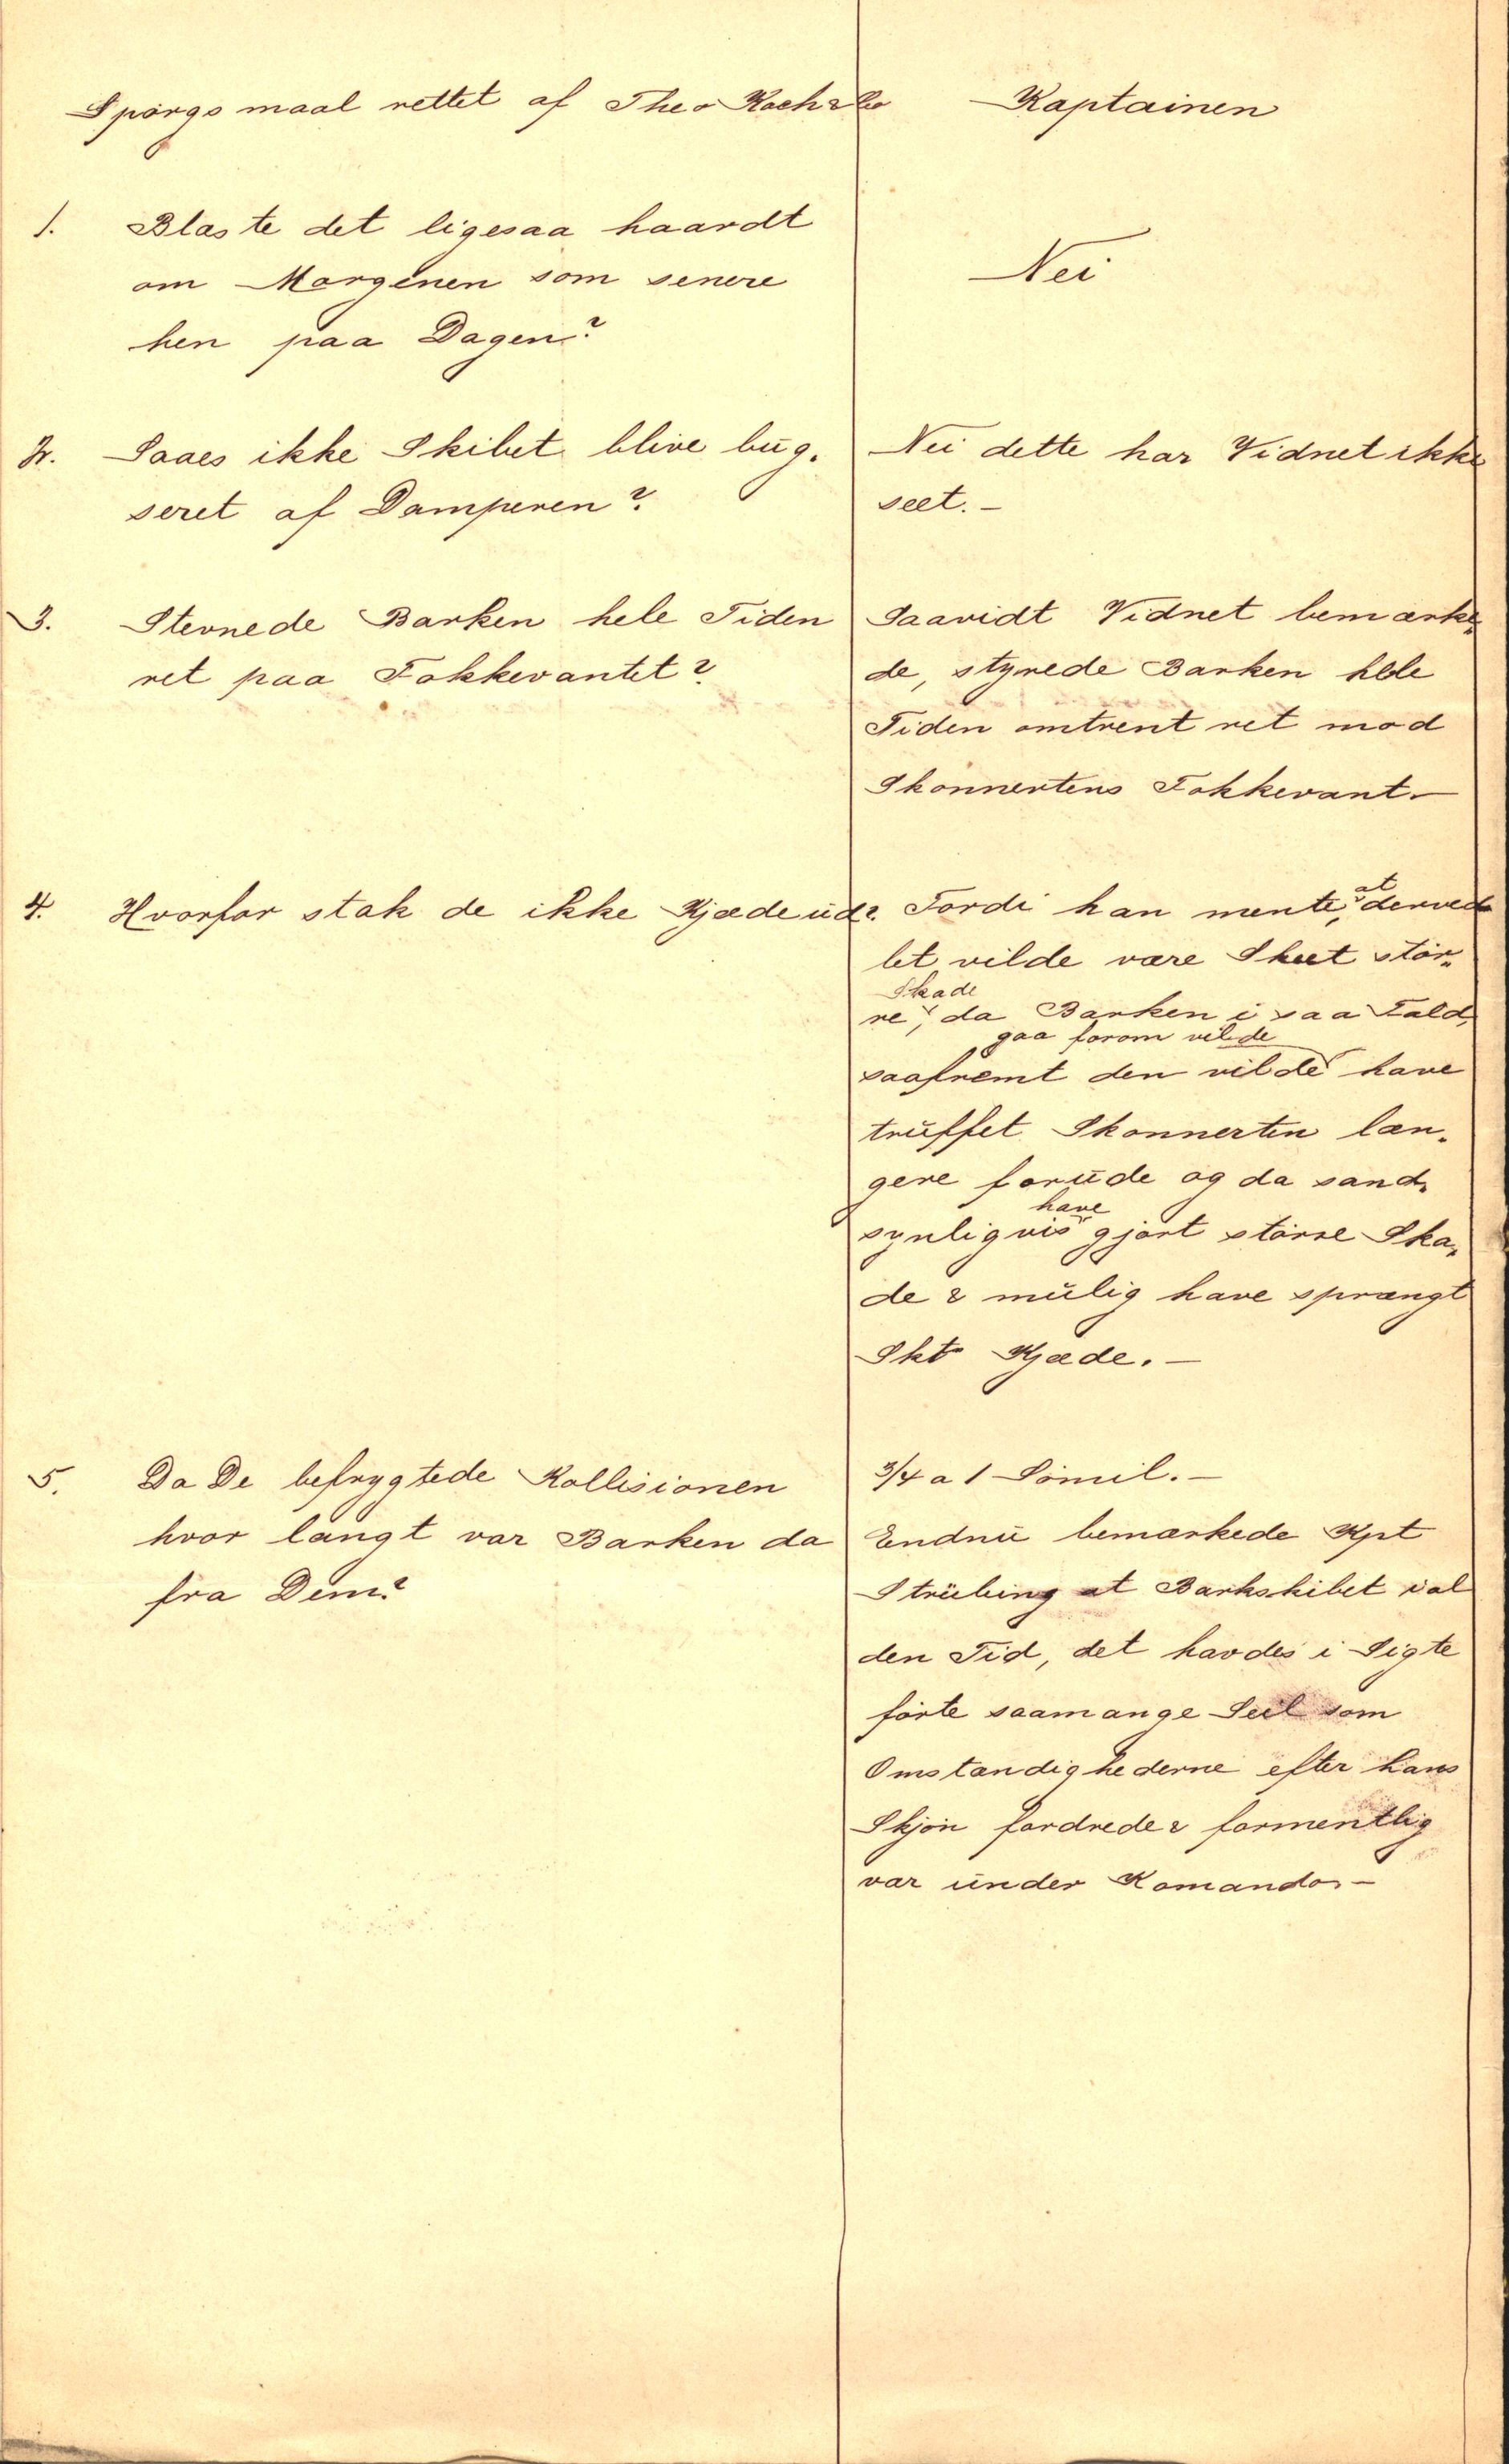 Spørgsmaal rettet af Theo Koch & Co
Kaptainen
1. Blæste det ligesaa haardt
om Morgenen som senere
hen paa Dagen?
Nei
2. Saaes ikke Skibet blive bug-
seret af Damperen?
Nei dette har Vidnet ikke
seet. -
3. Stevnede Barken hele Tiden
ret paa Fokkevantet?
Saavidt Vidnet bemærke-
de, styrede Barken hele
Tiden omtrent ret mod
Skonnertens Fokkevant. -
4. Hvorfor stak de ikke Kjæde ud?
Fordi han mente, at derved
let vilde være Skeet stør-
re Skade, da Barken i saa Fald,
saafremt den vilde gaa forom vilde have
truffet Skonnerten læn-
gere forude og da sand-
synligvis have gjort større Ska-
de & mulig have sprængt
Skts Kjæde. -
5. Da De befrygtede Kollisionen
hvor langt var Barken da
fra Dem?
3/4 a 1 Sømil. -
Endnu bemærkede Kpt
Strübing at Barkskibet i al
den Tid, det havdes i Sigte
førte saamange Seil som
Omstændighederne efter hans
Skjøn fordrede & formentlig
var under Komando. -